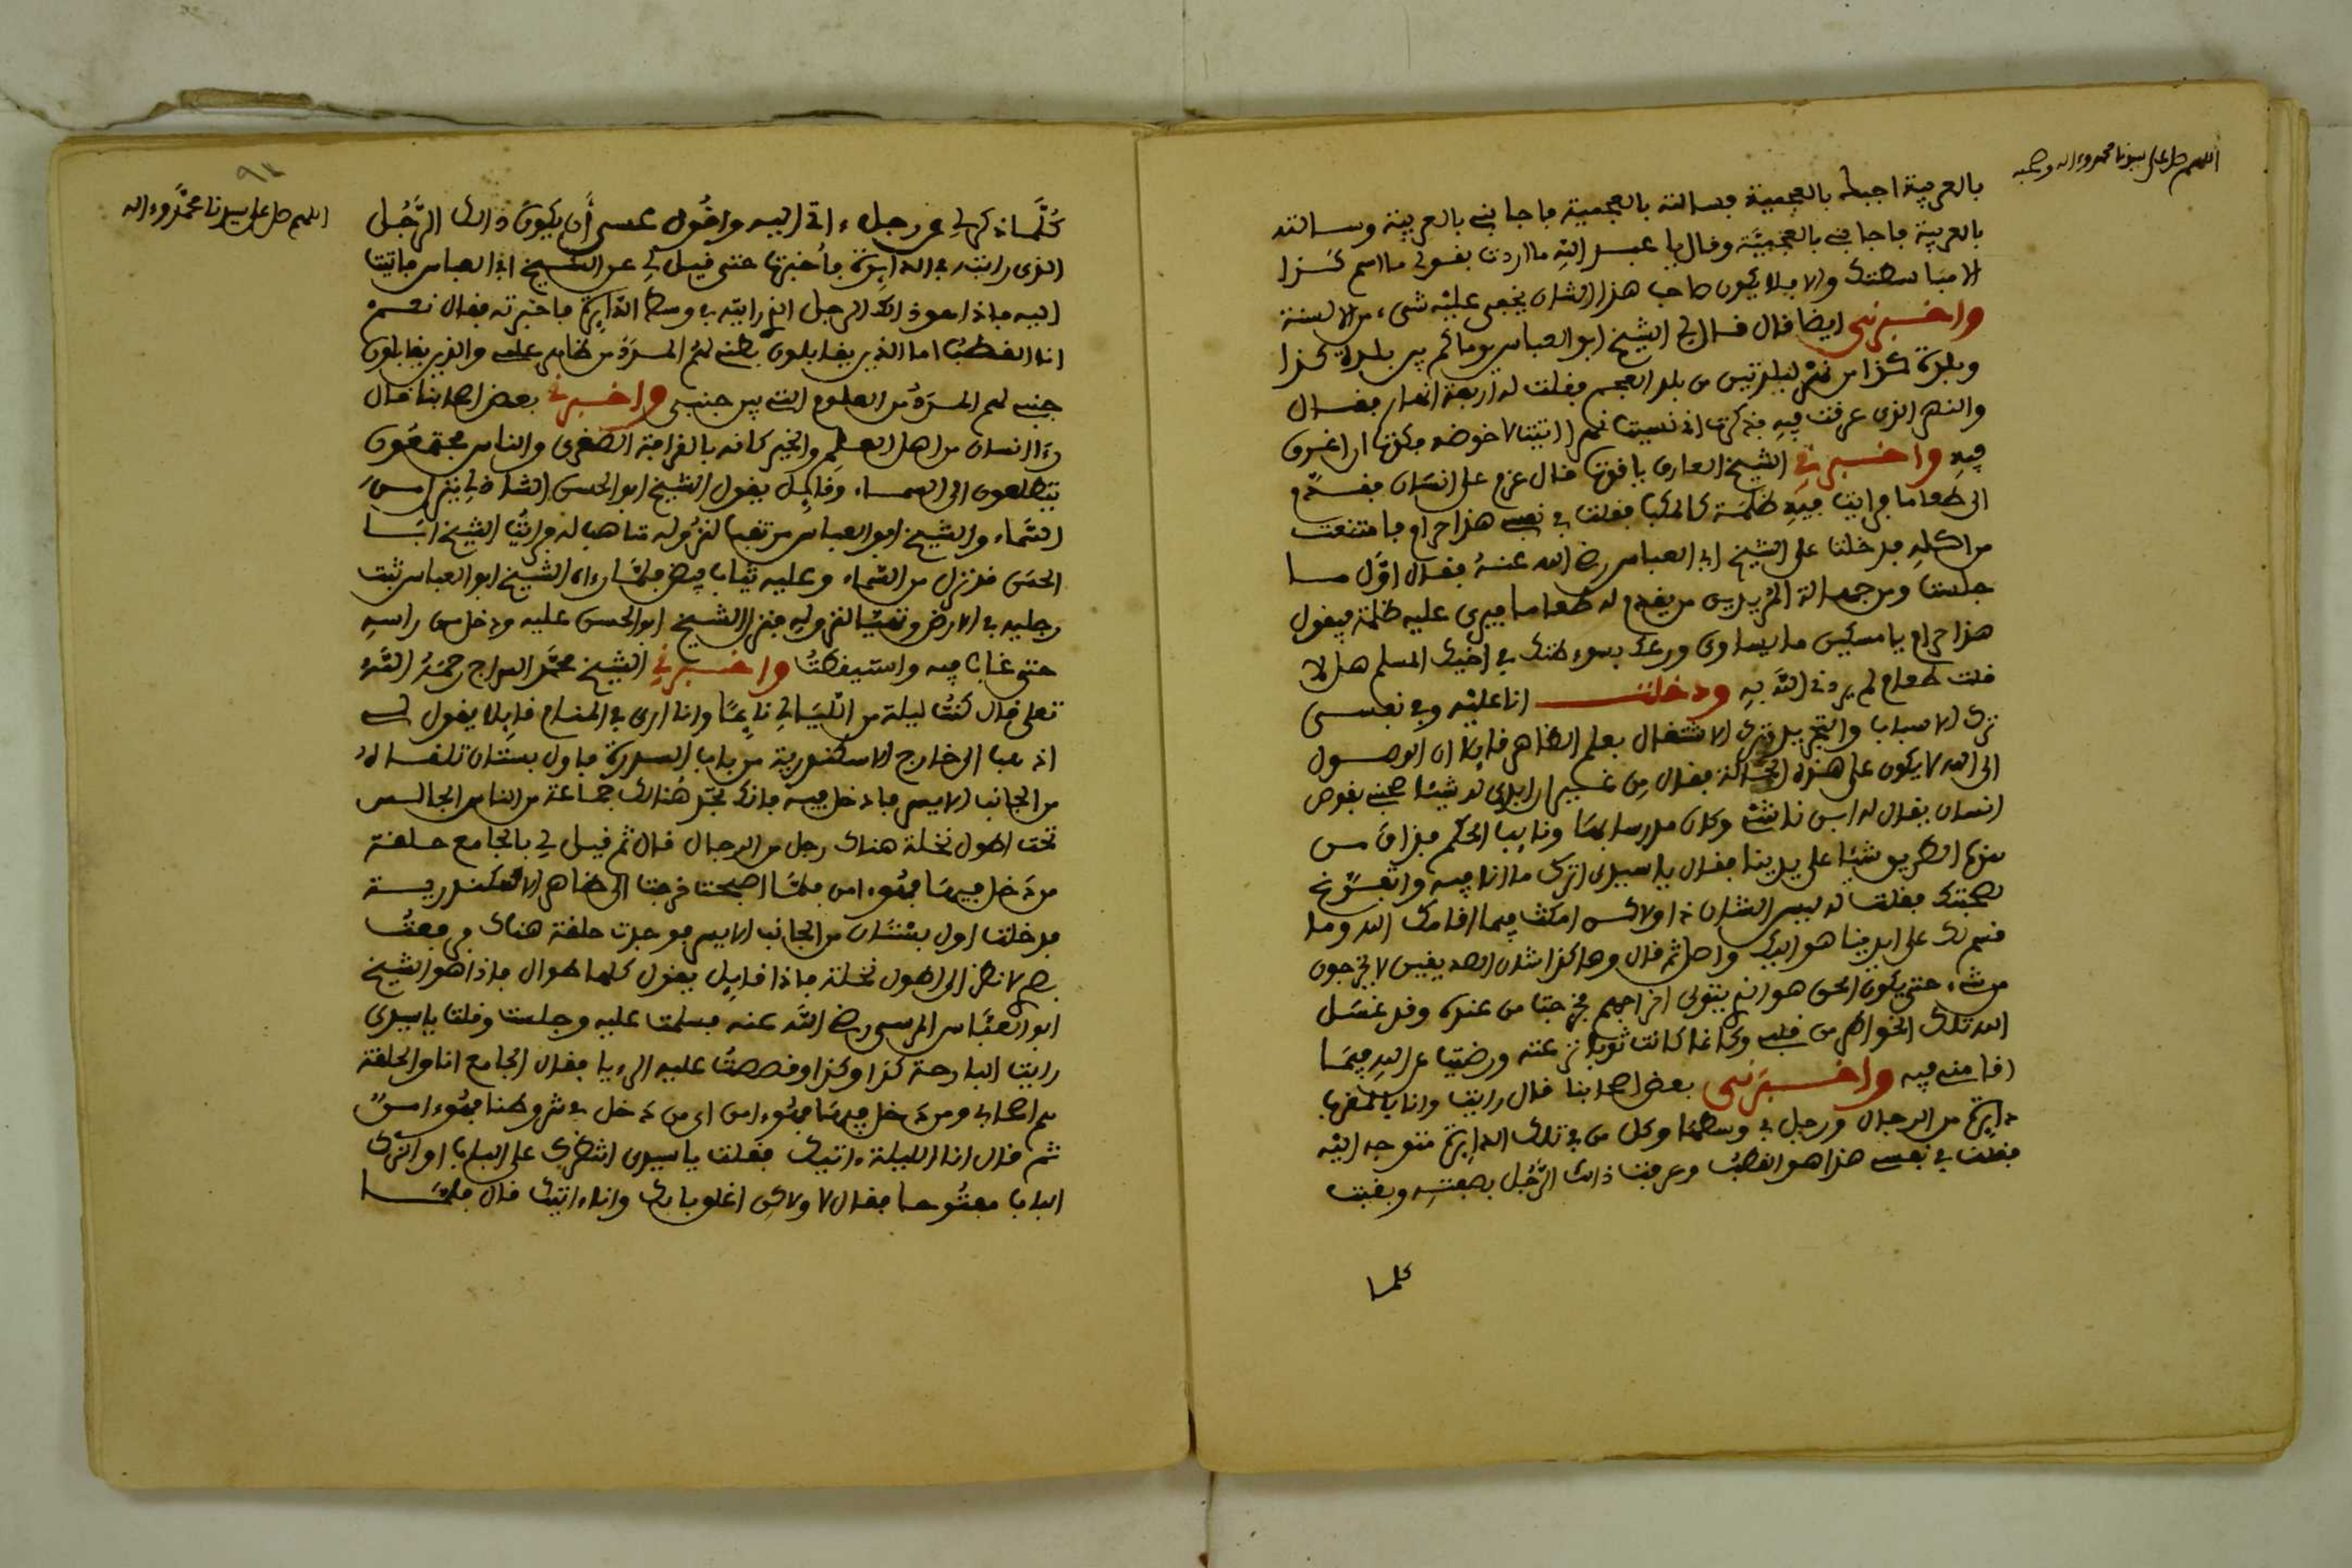 اللهم صل على سيدنا محمد وءاله وصحبه
بالعربية اجبته بالعجمية فسالته بالعجمية فاجابني بالعربية وسالته
بالعربية فاجابني بالعجمية وقال يا عبد الله ما اردت بقولي ما اسم كذا
الا مباسطتك والا فلا يكون صاحب هذا الشان يخفى عليه شيء من الالسنة
واخبرني ايضا قال قال لي الشيخ ابو العباس يوما كم بين بلدة كذا
وبلدة كذا من نهر لبلدتين من بلد العجم فقلت له اربعة انهار فقال
والنهر الذي غرقت فيه فذكرت اني نسيت نهرا اتيت لاخوضه فكدت ان اغرق
فيه واخبرني الشيخ العارف ياقوت قال عزم علي انسان فقدم
الي طعاما فرايت فيه ظلمة كالمكبا فقلت في نفسي هذا حرام فامتنعت
من اكله فدخلت على الشيخ ابي العباس رضي الله عنه فقال اول ما
جلست ومن جهالة المريدين من يقدم له طعاما فيرى عليه ظلمة فيقول
هذا حرام يا مسكين ما يساوي ورعك بسوء ظنك في اخيك المسلم هل لا
قلت طعام لم يردني الله به ودخلت انا عليه وفي نفسي
ترك الاسباب والتجريد وترك الاشتغال بعلم الظاهر قايلا ان الوصول
الى الله لا يكون على هذه الحالة فقال من غير ان ابدي له شيئا صحبني بقوص
انسان يقال له ابن ناشئ وكان مدرسا بها ونايب الحكم فذاق من
هذه الطريق شيئا على يدينا فقال يا سيدي اترك ما انا فيه واتفرغ
لصحبتك فقلت له ليس الشان ذا ولاكن امكث فيما اقامك الله وما
قسم لك على ايدينا هو اليك واصل ثم قال وهاكذا شان الصديقين لا يخرجون
من شيء حتى يكون الحق هو الذي يتولى اخراجهم فخرجت من عنده وقد غسل
الله تلك الخواطر من قلبي وكانما كانت ثوبا نزعته ورضيت عن الله فيما
اقامني فيه واخبرني بعض اصحابنا قال رايت وانا بالمغرب
دايرة من الرجال ورجل في وسطها وكل من في تلك الدايرة متوجه اليه
فقلت في نفسي هذا هو القطب وعرفت ذالك الرجل بصفته وبقيت
كلما
اللهم صل على سيدنا محمد وءاله
كلما ذكر لي عن رجل ءاتي اليه واقول عسى أن يكون ذالك الرجل
الذي رايته في الدايرة فأخبرتها حتى قيل لي عن الشيخ ابي العباس فاتيت
اليه فاذا هو ذالك الرجل الذي رايته في وسط الدايرة فاخبرته فقال نعم
انا القطب اما الذين يقابلون بطني لهم المدد من ظاهر علمي والذين يقابلون
جنبي لهم المدد من العلوم التي بين جنبي واخبرني بعض اصحابنا قال
رءا انسان من اهل العلم والخير كانه بالقرافة الصغرى والناس مجتمعون
يتطلعون الى السماء وقايل يقول الشيخ ابو الحسن الشاذلي ينزل من
السماء والشيخ ابو العباس مرتقب لنزوله متاهب له فرايت الشيخ ابا
الحسن قد نزل من السماء وعليه ثياب بيض فلما رءاه الشيخ ابو العباس ثبت
رجليه في الارض وتهيا لنزوله فنزل الشيخ ابو الحسن عليه ودخل من راسه
حتى غاب فيه واستيقظت واخبرني الشيخ محمد السراج رحمه الله
تعلى قال كنت ليلة من الليالي نايما وانا ارى في المنام قايلا يقول لي
اذهب الى خارج الاسكندرية من باب السدرة فاول بستان تلقاه
من الجانب الايسر فادخل فيه فانك تجد هنالك جماعة من الناس الجالس
تحت اطول نخلة هناك رجل من الرجال قال ثم قيل لي بالجامع حلقة
من دخل فيها فهو ءامن فلما اصبحت خرجت الى ظاهر الاسكندرية
فدخلت اول بستان من الجانب الايسر فوجدت حلقة هناك فرفعت
بصري لانظر الى اطول نخلة فاذا قايل يقول كلها طوال فاذا هو الشيخ
ابو العباس المرسي رضي الله عنه فسلمت عليه وجلست وقلت يا سيدي
رايت البارحة كذا وكذا وقصصت عليه الرءيا فقال الجامع انا والحلقة
هم اصحابي ومن دخل فيها فهو ءامن اي من دخل في شروطنا فهو ءامن
ثم قال انا الليلة ءاتيك فقلت يا سيدي انتظرك على الباب او اترك
الباب مفتوحا فقال لا ولاكن اغلق بابك وانا ءاتيك قال فلما